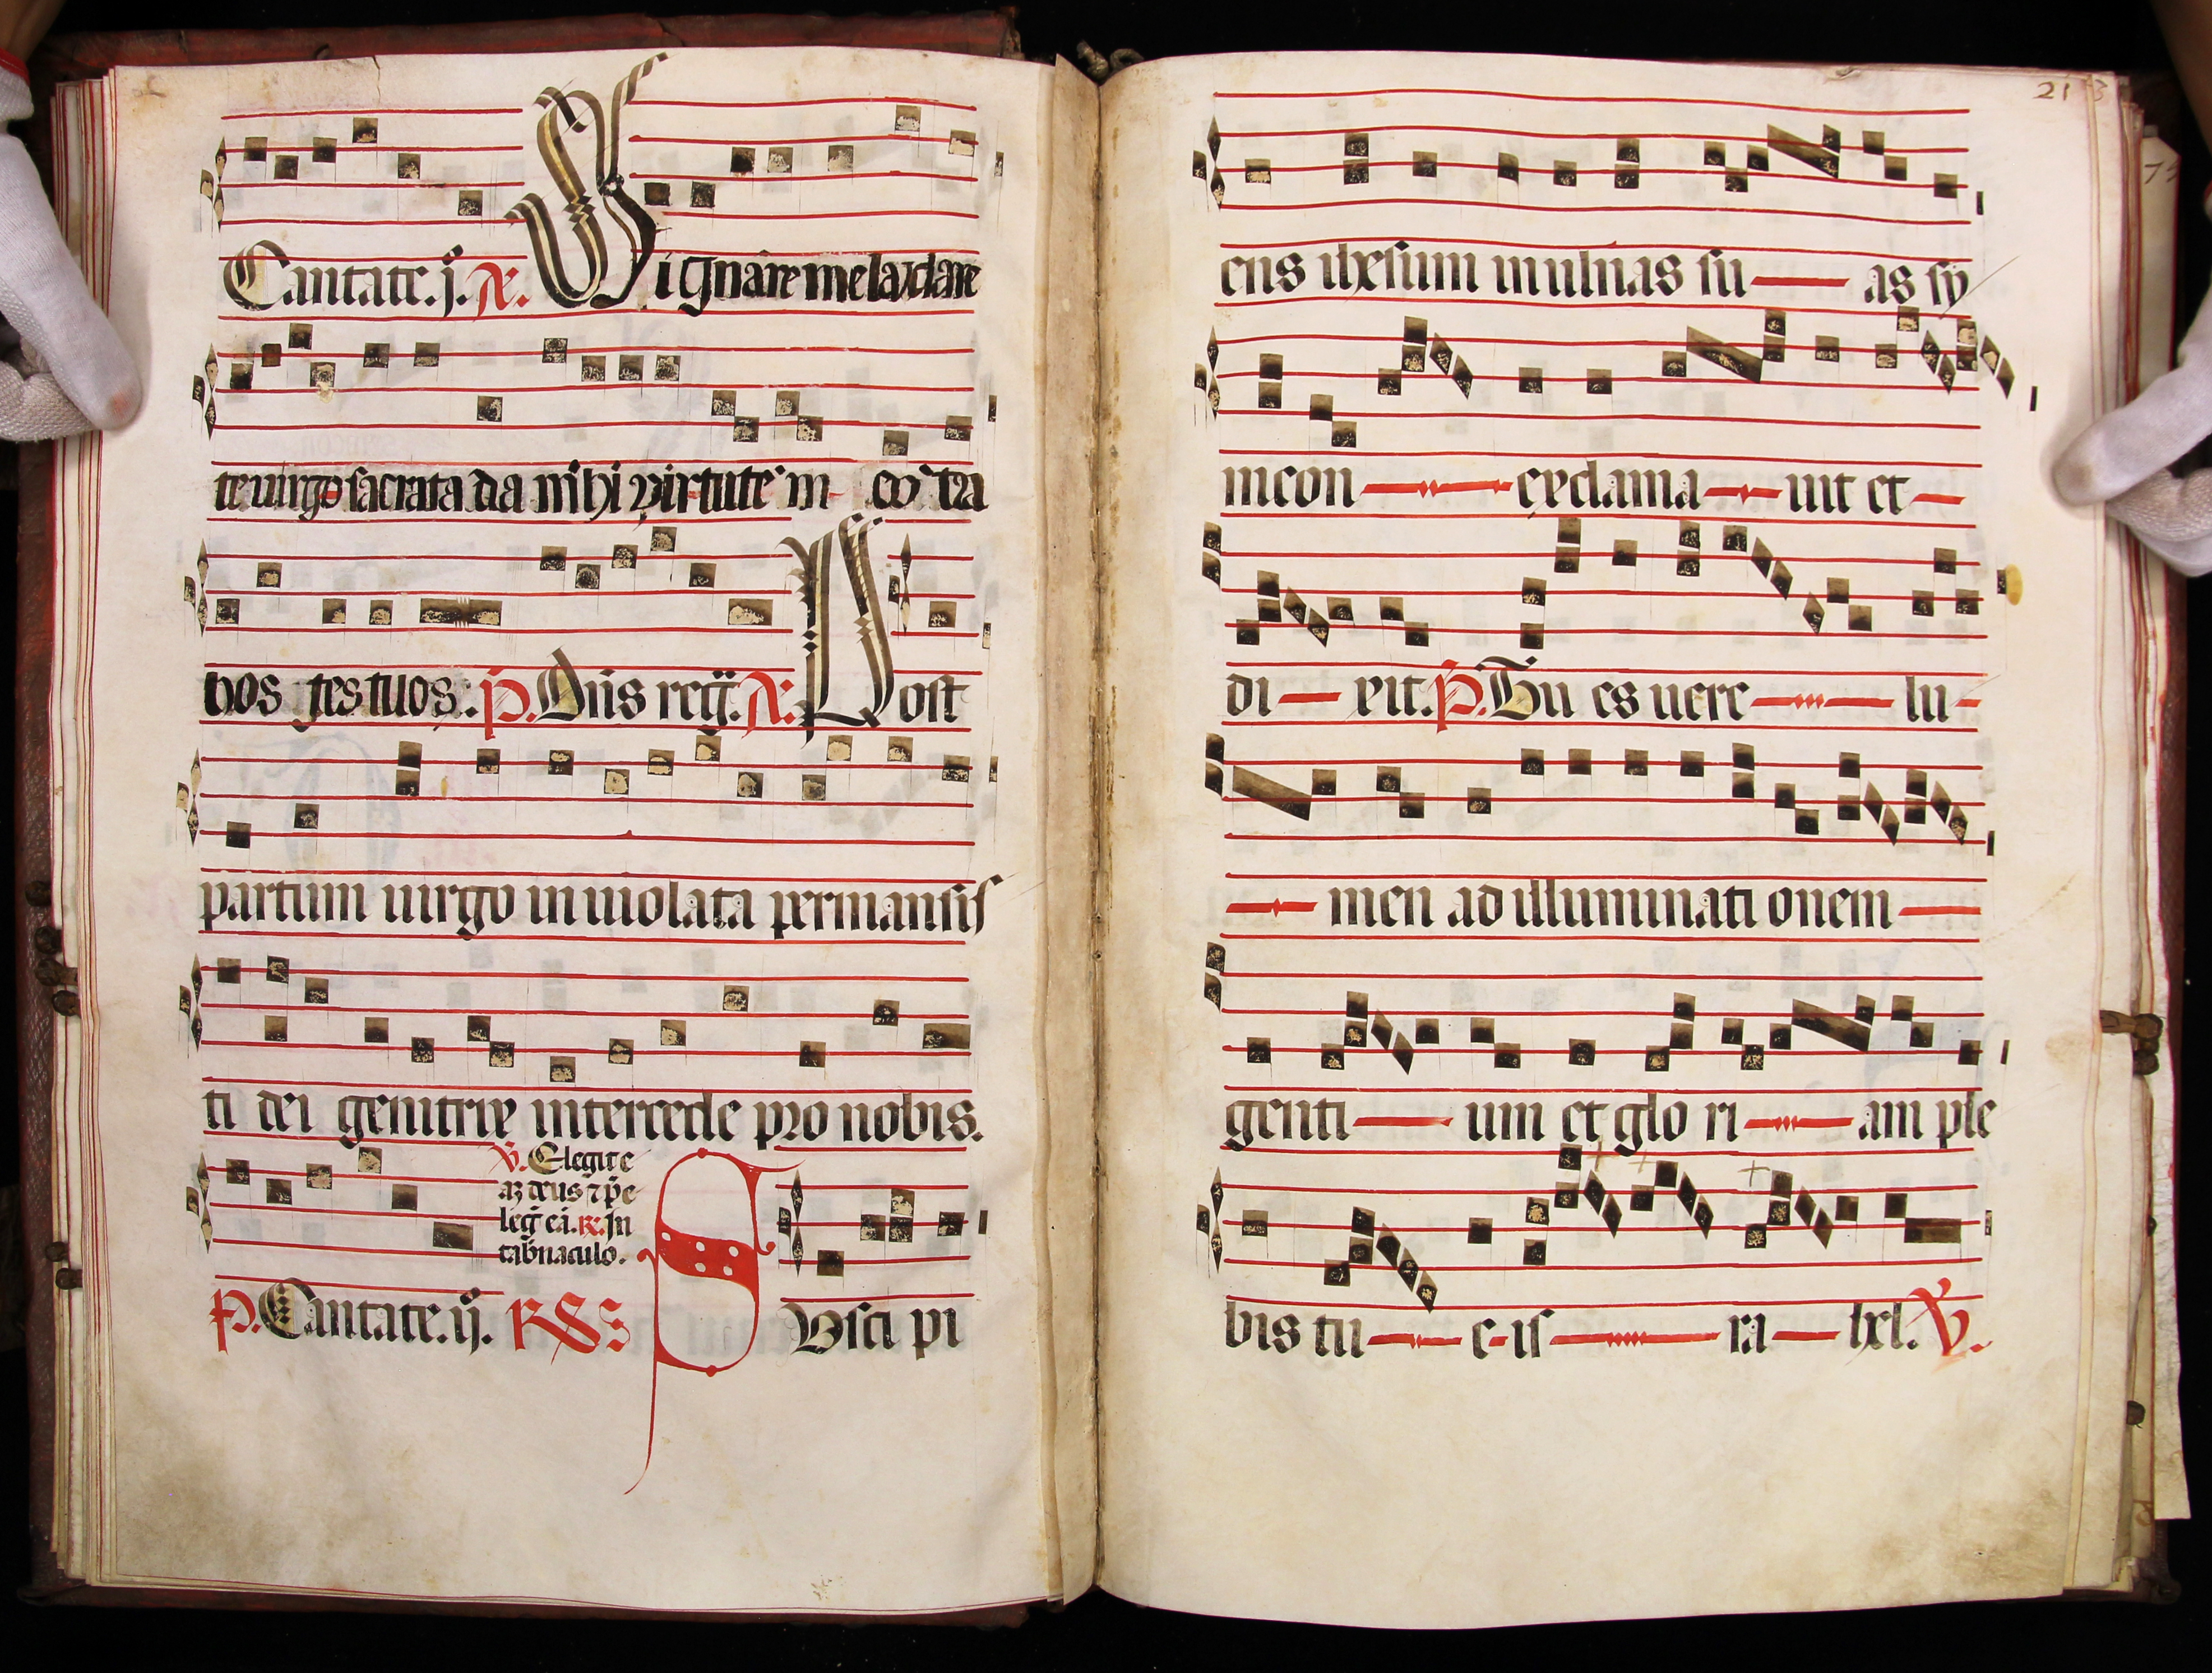 Cantate.ij. A. Dignare me laudare
te uirgo sacrata da mihi virtute in co tra
hos tes tuos. p. Dn̄s reg̃. A. Post
partum uirgo inuiolata permansis
ti dei genitrix intercede pro nobis.
v. Elegit e
az deus ⁊ p̃e
leg̃ eã. R. In
tab̃naculo.
p. Cantate.ij. RS S Vsci pi
213
ens ihesum in ulnas su as sy
meon exclama uit et
di xit. p. Tu es uere lu
men ad illuminati onem
genti um et glo ri am ple
bis tu e is ra hel. v.